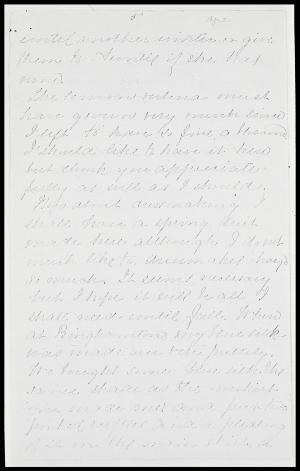 5
until another winter or give
them to Auntie if she has
none.
The lemon verbena must
have grown very much since
I left to have so fine a
I should like to have it here
but think you appreciate
fully as well as I should.
About dressmaking, I
shall have a spring suit
made here although I don't
much like the dressmaker
so much. It seems necessary
but I hope it will be all I
shall need until fall. When
at Binghamton my blue silk
was made over very prettily.
We bought some blue silk the
same shade as the
one made over and put two
ruffles and a pleating
of it on the